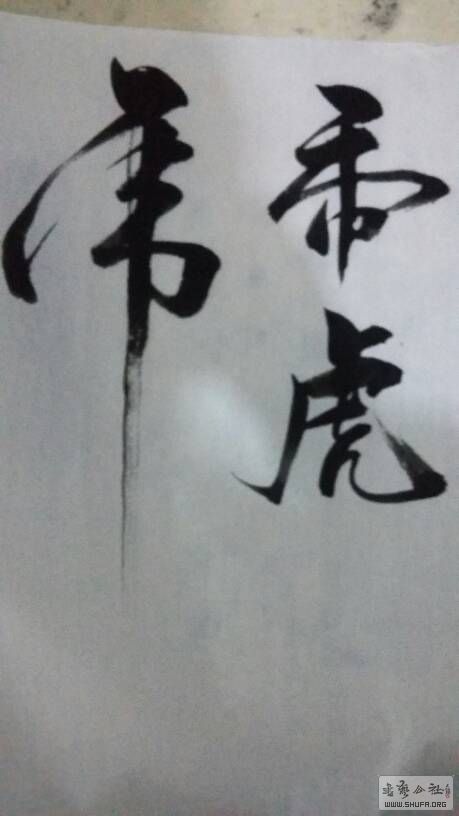 帝虎
虎
书艺公社
WWW.SHUFA.ORG